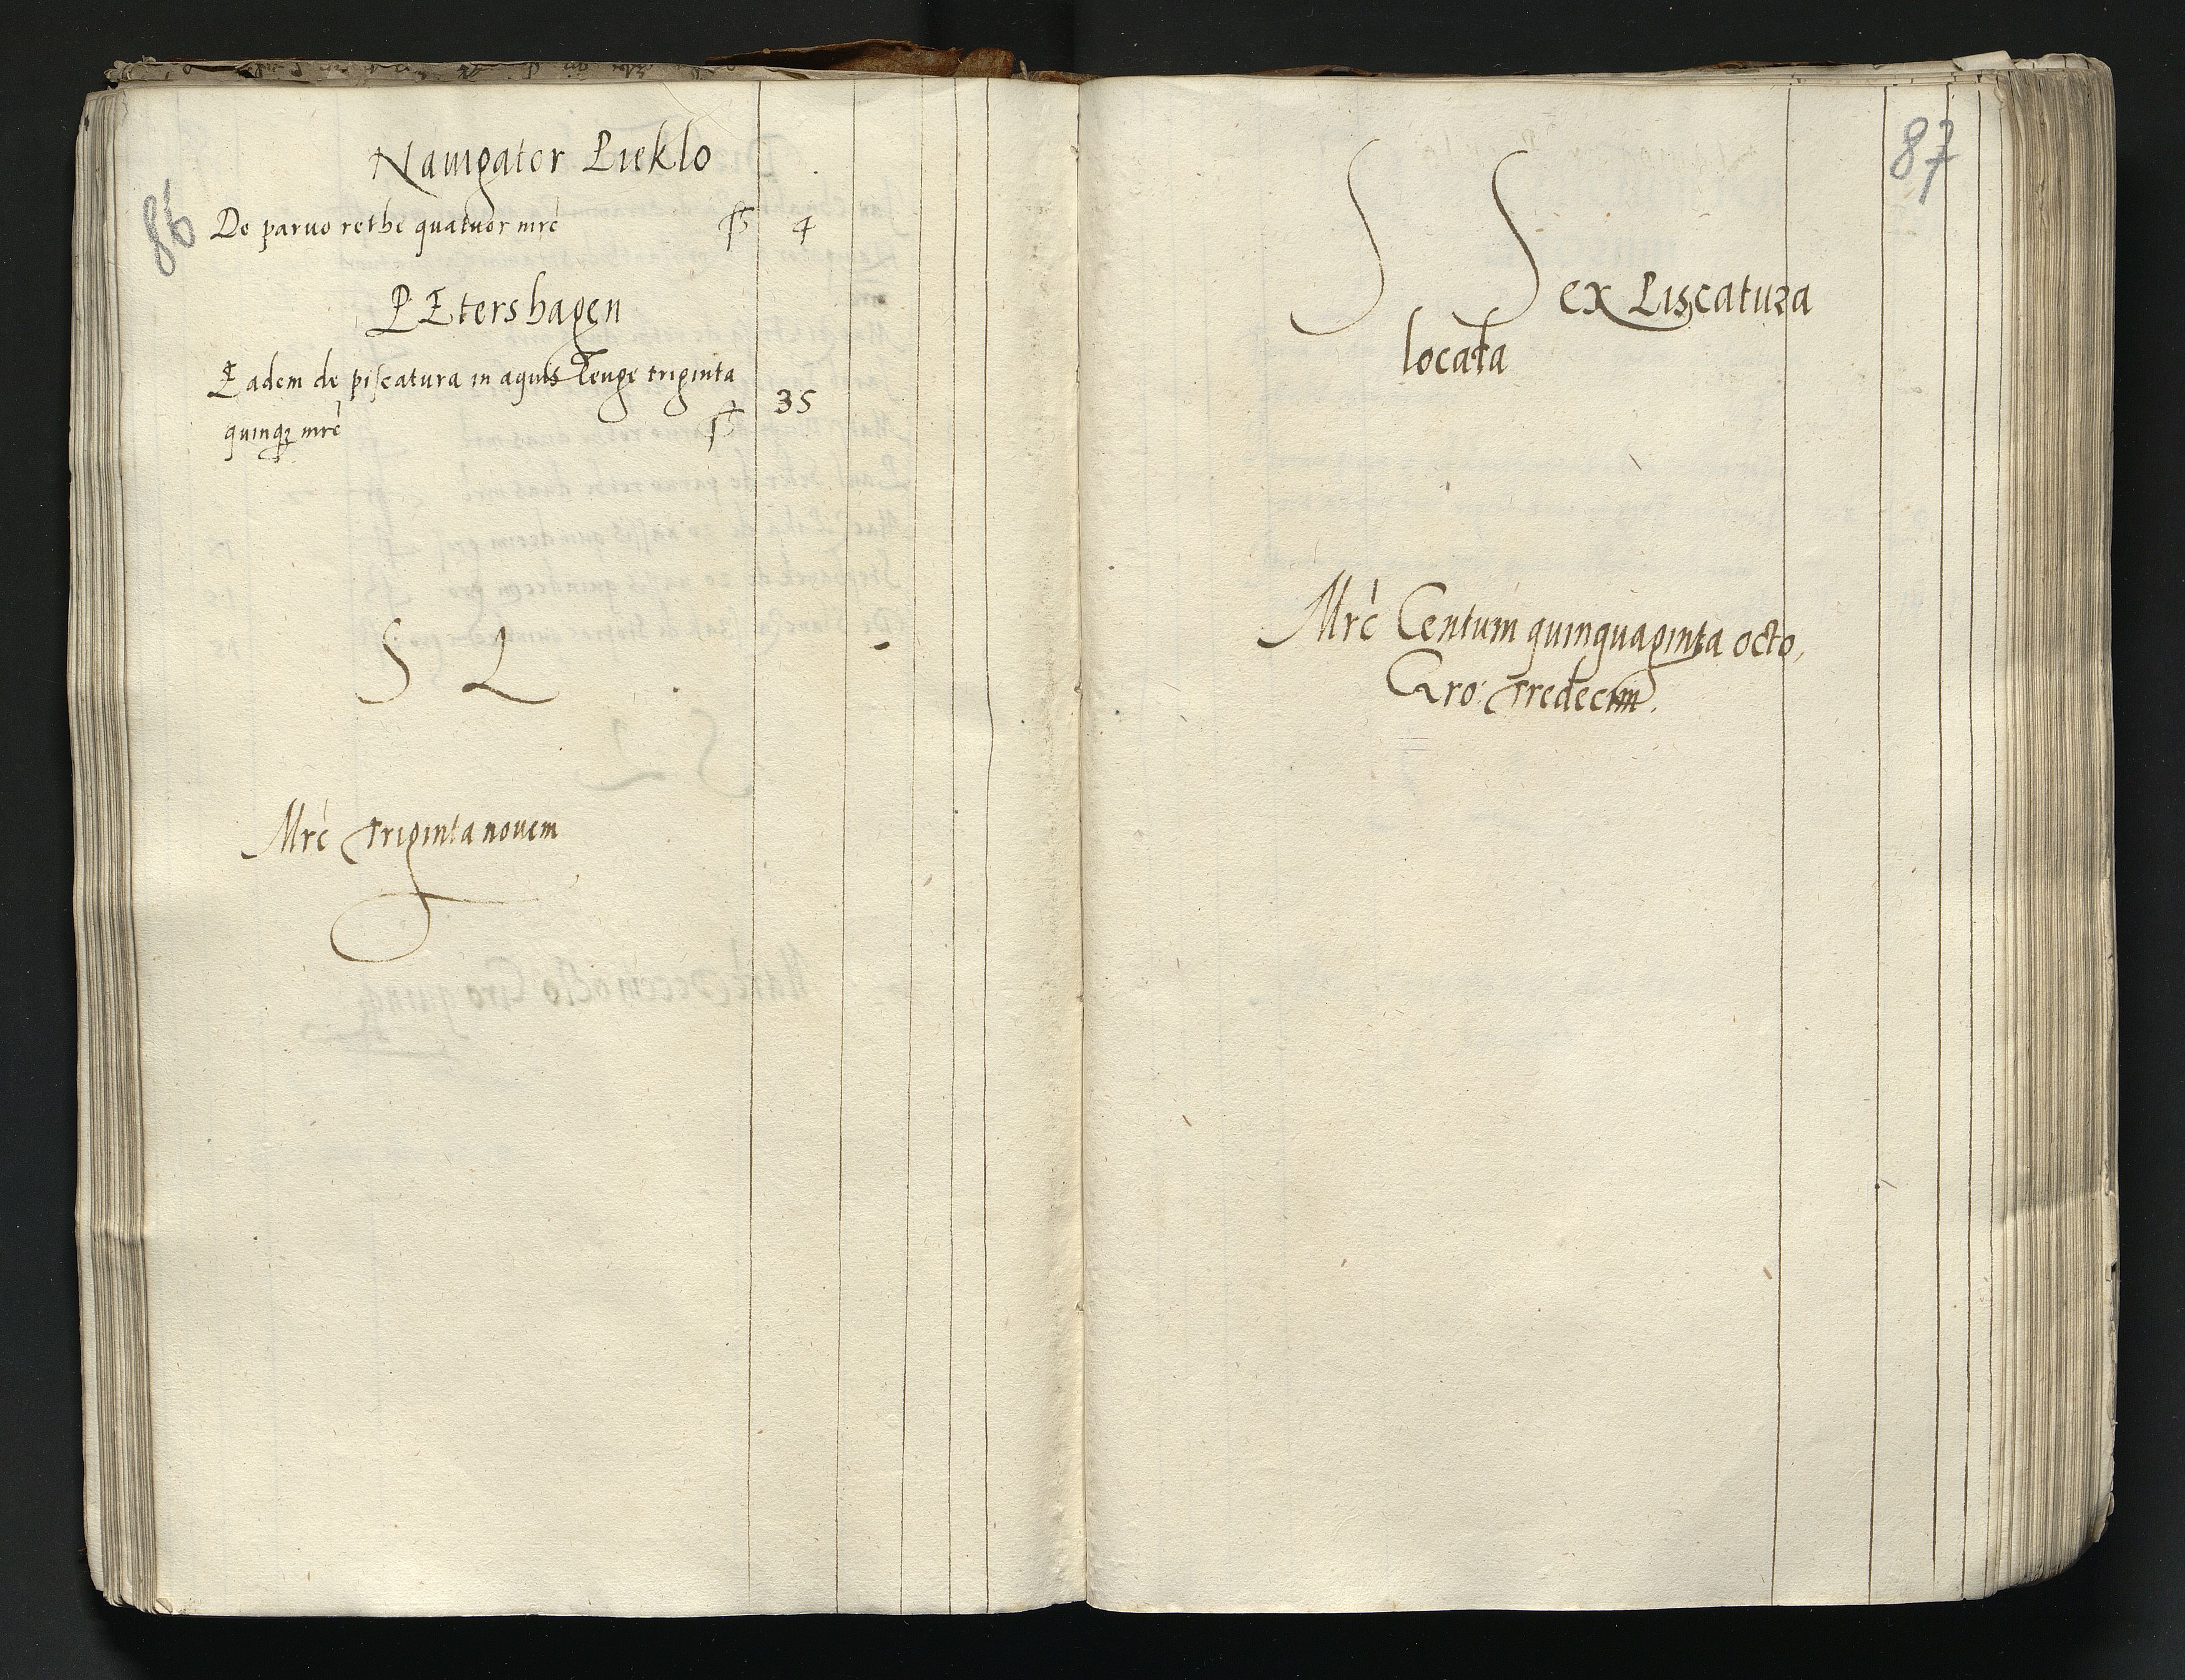 86
Nauigator Pieklo
De paruo rethe quatuor mrc ſſ 4
PEtershagen
Eadem de piſcatura in aquis Tenge triginta
quinqꝫ mrc ſſ 35
S L
Mrc Triginta nouem
87
S S ex Piscatura
locata
Mrc Centum quinquaginta octo,
Gro: Tredecim.